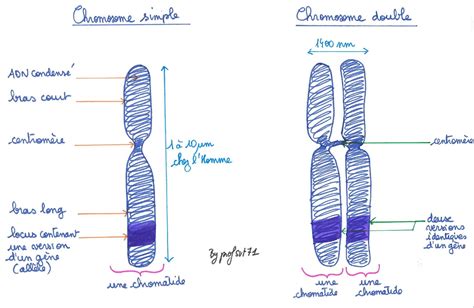 Chromosome simple
Chromosome double
1400 nm
ADN condensé
bras court
centromère
1 à 10 µm
chez l'Homme
centromère
bras long
locus contenant
une version
d'un gène
(allèle)
By profsvt71
deux
versions
identiques
d'un gène
une chromatide
une
chromatide
une
chromatide